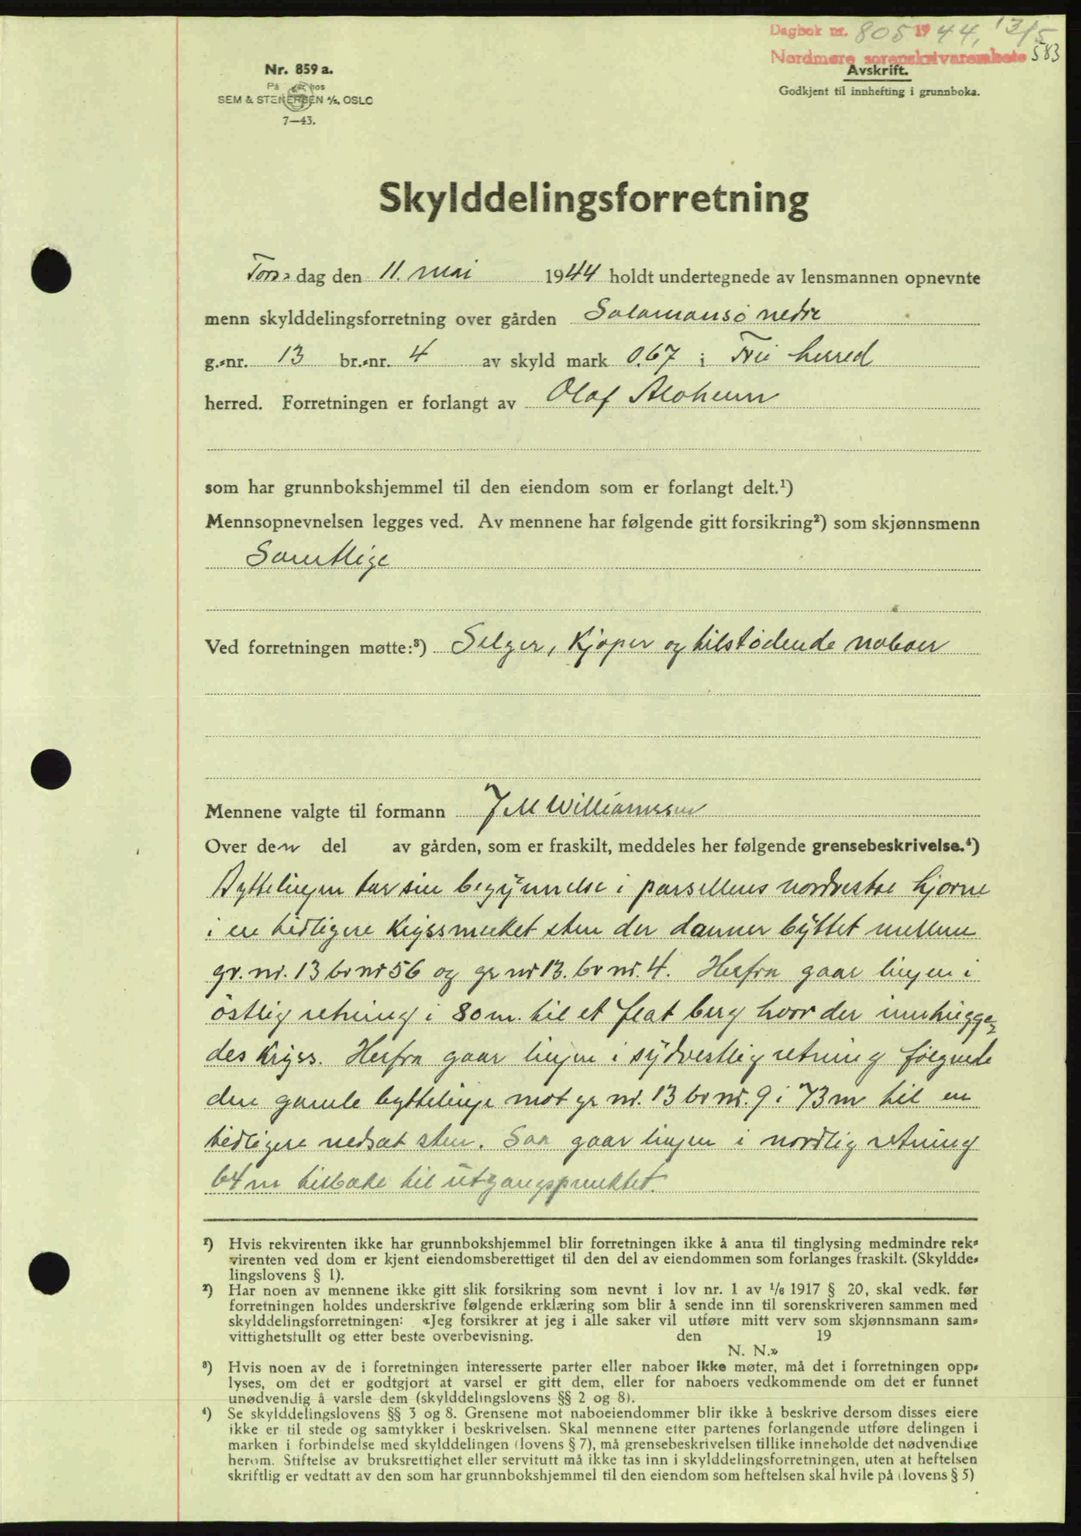 Dagbok nr. 805 1944, 13/5
Nordmøre sorenskriverembete 583
Nr. 859 a.
På lager hos
SEM & STENERSEN A/S, OSLO
7—43.
Avskrift.
Godkjent til innhefting i grunnboka.
Skylddelingsforretning
Torsdag den 11. mai 1944 holdt undertegnede av lensmannen opnevnte
menn skylddelingsforretning over gården Salamonsø nedre
g.-nr. 13 br.-nr. 4 av skyld mark 0.67 i Frei herred
herred. Forretningen er forlangt av Olaf
som har grunnbokshjemmel til den eiendom som er forlangt delt.¹)
Mennsopnevnelsen legges ved. Av mennene har følgende gitt forsikring²) som skjønnsmenn
Samtlige
Ved forretningen møtte:³) Selger, Kjøper og tilstødende naboer
Mennene valgte til formann J M Williamssen
Over den del av gården, som er fraskilt, meddeles her følgende grensebeskrivelse.⁴)
Byttelinjen har sin begynnelse i parsellens nordvestre hjørne
i en tidligere kryssmerket sten der danner byttet mellem
gr. nr. 13 br nr 56 og gr nr 13. br nr. 4. Herfra gaar linjen i
østlig retning i 80 m. til et flat berg hvor der innhugge-
des kryss. Herfra gaar linjen i sydvestlig retning følgende
den gamle byttelinje mot gr nr. 13 br nr. 9 i 73 m til en
tidligere nedsat sten. Saa gaar linjen i nordlig retning
64 m tilbake til utgangspunktet.
¹) Hvis rekvirenten ikke har grunnbokshjemmel blir forretningen ikke å anta til tinglysing medmindre rek-
virenten ved dom er kjent eiendomsberettiget til den del av eiendommen som forlanges fraskilt. (Skyldde-
lingslovens § 1).
²) Har noen av mennene ikke gitt slik forsikring som nevnt i lov nr. 1 av 1/6 1917 § 20, skal vedk. før
forretningen holdes underskrive følgende erklæring som blir å sende inn til sorenskriveren sammen med
skylddelingsforretningen: «Jeg forsikrer at jeg i alle saker vil utføre mitt verv som skjønnsmann sam-
vittighetsfullt og etter beste overbevisning. den 19
N. N.»
³) Hvis noen av de i forretningen interesserte parter eller naboer ikke møter, må det i forretningen opp-
lyses, om det er godtgjort at varsel er gitt dem, eller for naboers vedkommende om det er funnet
unødvendig å varsle dem (skylddelingslovens §§ 2 og 8).
⁴) Se skylddelingslovens §§ 3 og 8. Grensene mot naboeiendommer blir ikke å beskrive dersom disses eiere
ikke er til stede og samtykker i beskrivelsen. Skal mennene etter partenes forlangende utføre delingen i
marken i forbindelse med skylddelingen (lovens § 7), må grensebeskrivelsen tillike inneholde det nødvendige
herom. Stiftelse av bruksrettighet eller servitutt må ikke tas inn i skylddelingsforretningen, uten at heftelsen
skriftlig er vedtatt av den som har grunnbokshjemmel til den eiendom som heftelsen skal hvile på (lovens § 5)